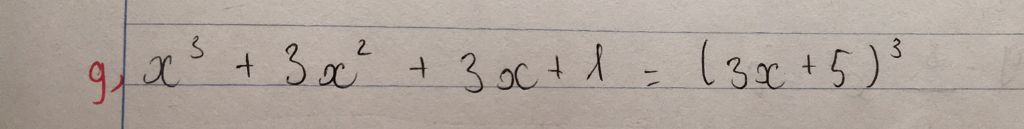 g, x³ + 3x² + 3x + 1 = (3x + 5)³